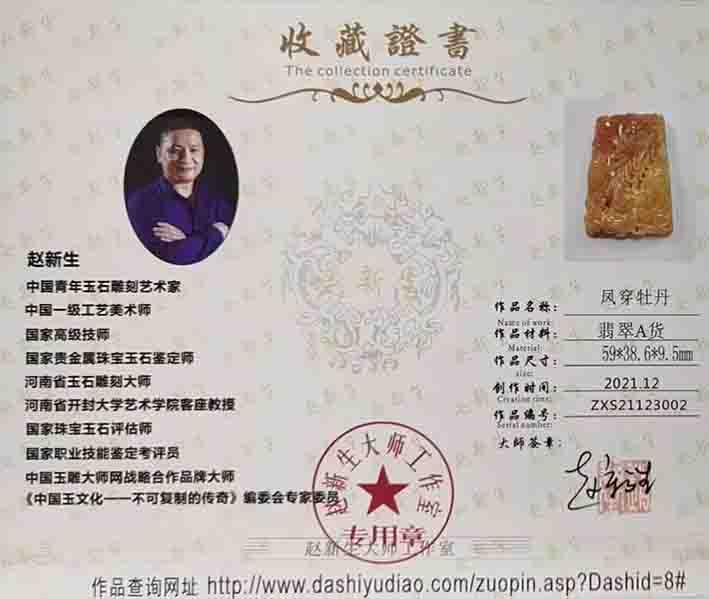 收藏證書
The collection certificate
赵新生
中国青年玉石雕刻艺术家
中国一级工艺美术师
国家高级技师
国家贵金属珠宝玉石鉴定师
河南省玉石雕刻大师
河南省开封大学艺术学院客座教授
国家珠宝玉石评估师
国家职业技能鉴定考评员
中国玉雕大师网战略合作品牌大师
《中国玉文化——不可复制的传奇》编委会专家委员
作品名称: 凤穿牡丹
Name of work:
作品材料: 翡翠A货
Material:
作品尺寸: 59*38.6*9.5mm
size:
创作时间: 2021.12
Creation time:
作品编号: ZXS21123002
Serial number:
大师签章:
赵新生大师工作室
专用章
赵新生大师工作室
作品查询网址 http://www.dashiyudiao.com/zuopin.asp?Dashid=8#